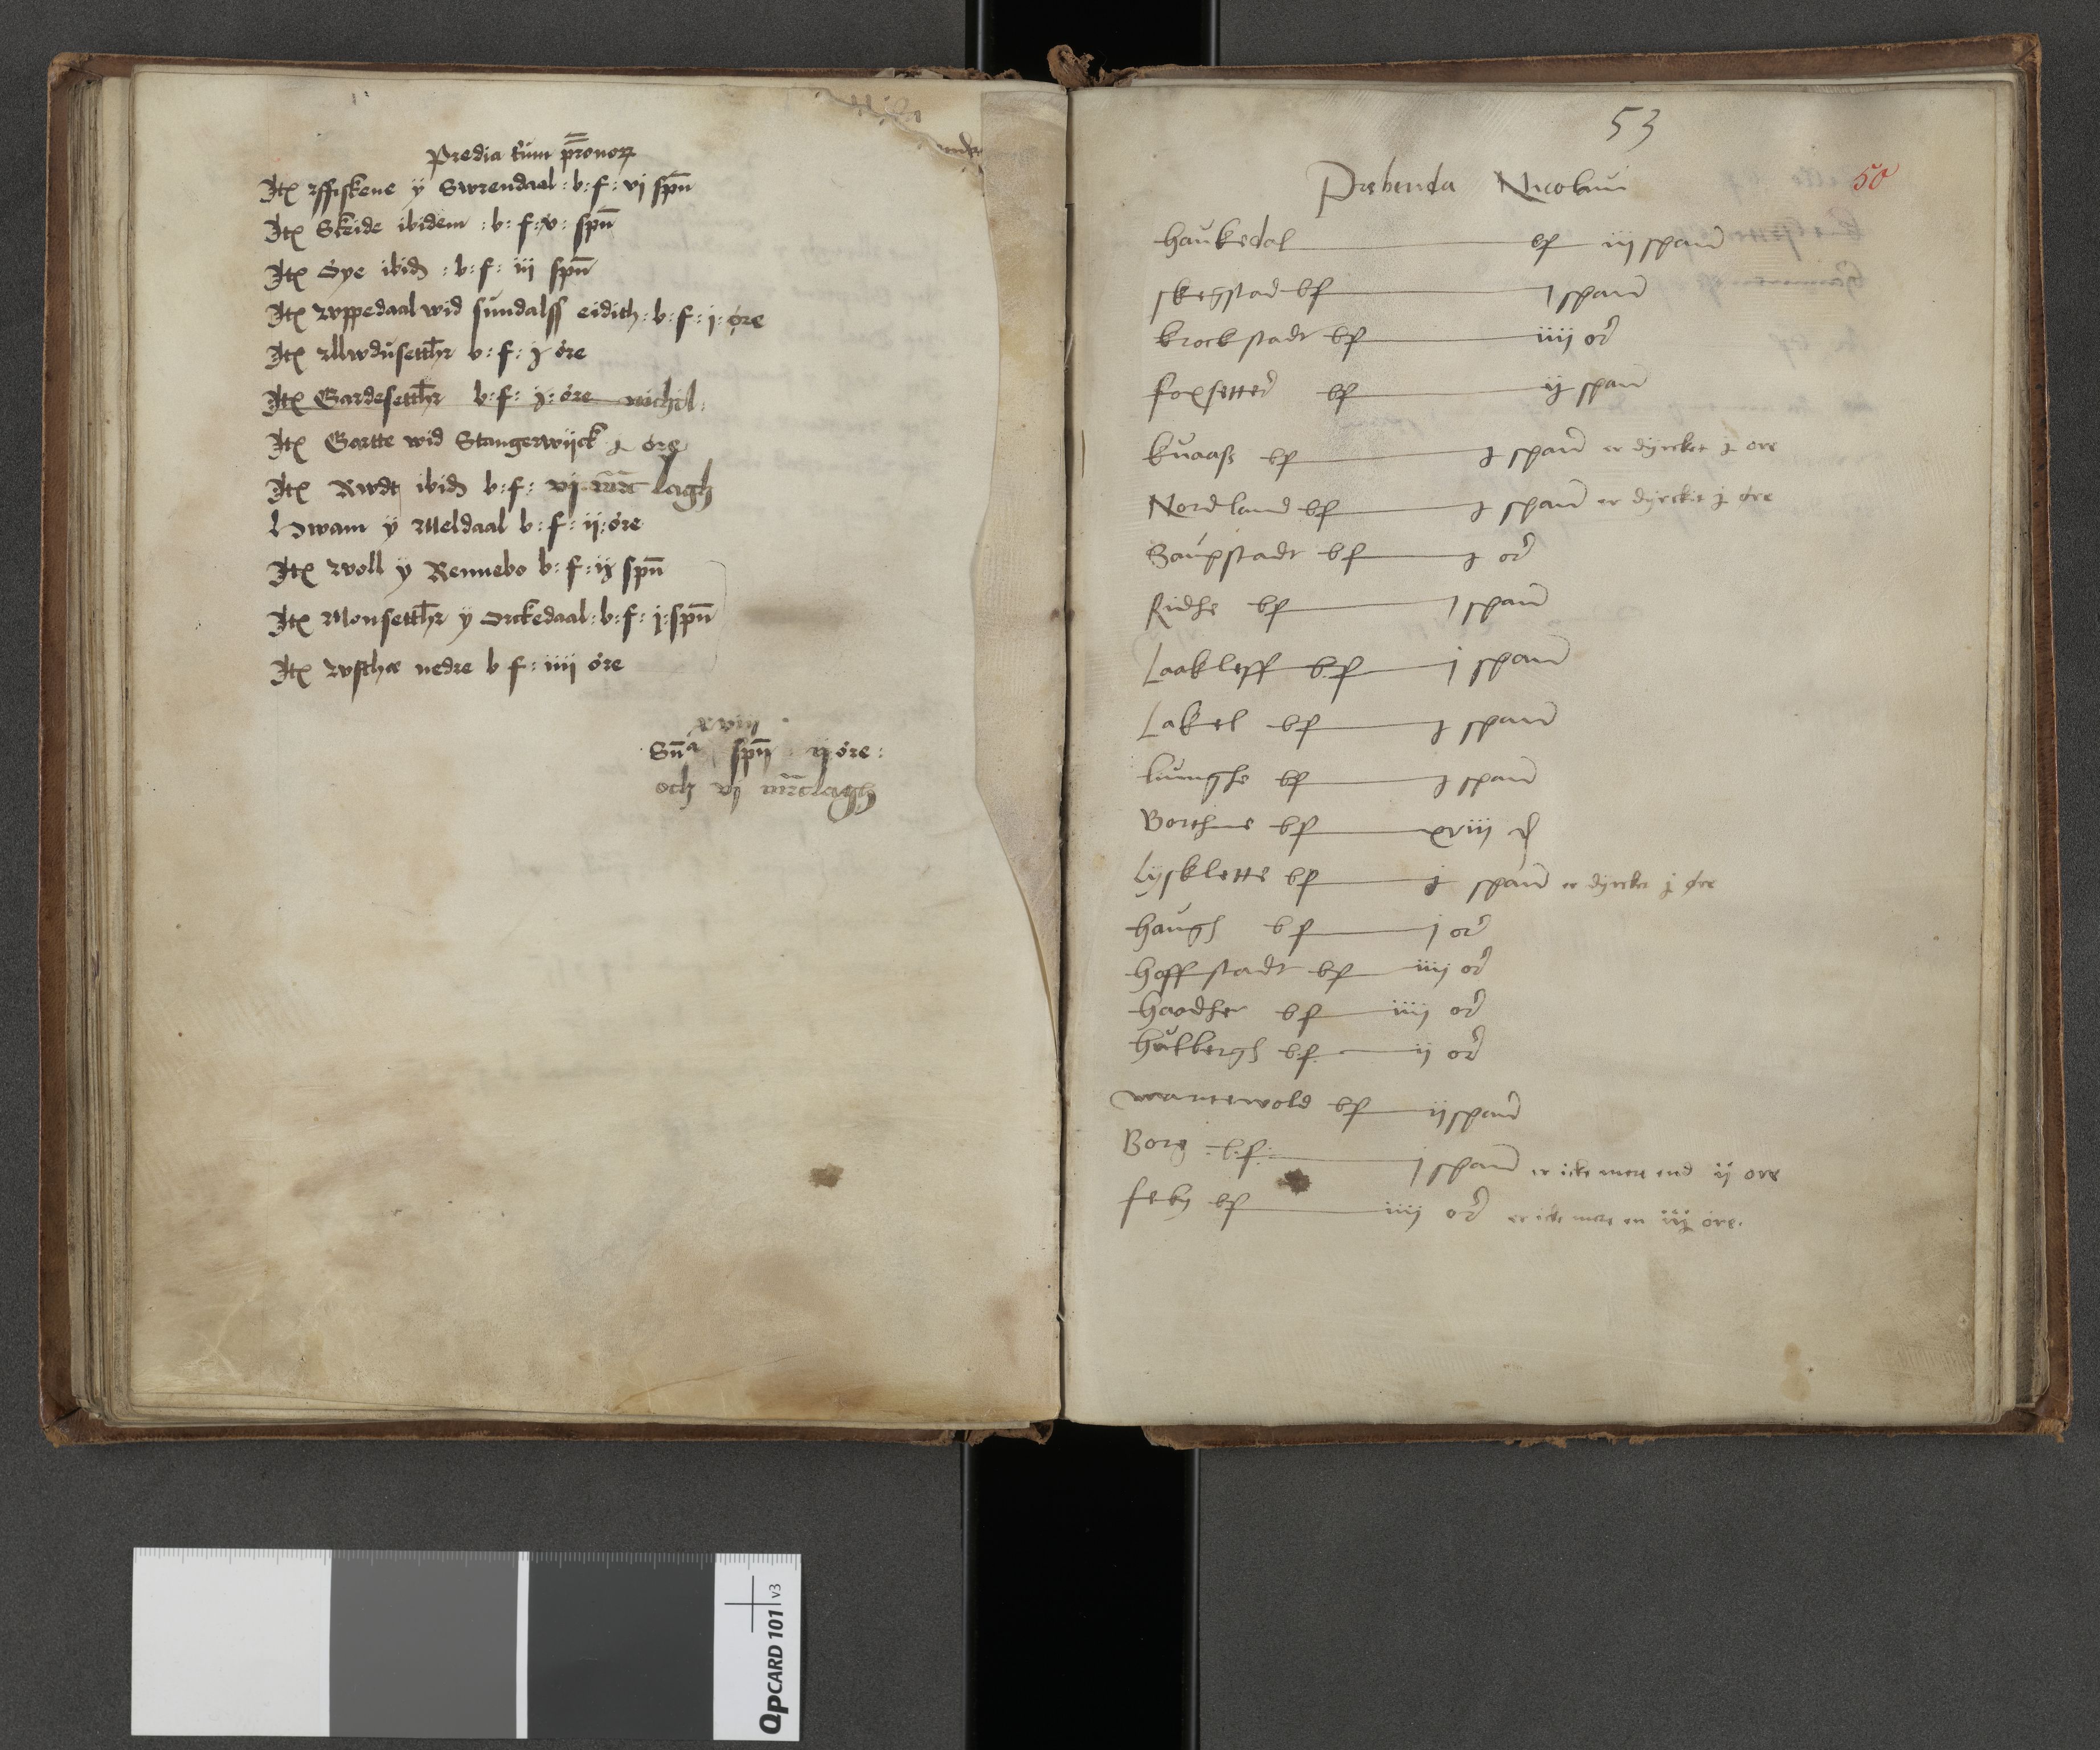 Predia trium p̄ronoꝝ
Itꝭ rffiskene ÿ Swrendaal : b : f : vj spn̄
Itꝭ Skeide ibidem : b : f : v : spn̄
Itꝭ Øye ibid : b : f : iij spn̄
Itꝭ wppedaal wid sundalss eidith : b : f : j : øre
Itꝭ b : f : ɟ øre
Itꝭ Gardesetthr b : f : ɟ : øre nichil
Itꝭ Gortte wid Stangerwijck ɟ øre
Itꝭ Rwdt ibid b : f : vj lagh
Hwam ÿ Meldaal b : f : ij : øre
Itꝭ woll ÿ Rennebo b : f : ij spn̄
Itꝭ Monsetthr ÿ Orckedaal : b : f : j : spn̄
Itꝭ nedre b f : iiij øre
xviij
Sn̄a spn̄ ij øre :
och vj lagh
53
50
Prebenda Nicolaui
haukedal bf iij spand
skegstad bf j spand
krockstadt bf iiij ør
foxsetter bf ij spand
kuaaß bf ɟ spand er dÿrcket ɟ øre
Nordland bf ɟ spand er dÿrcket ɟ øre
Gaupstadt bf ɟ ør
Ridhe bf j spand
Laakleff bf j spand
Lakel bf ɟ spand
liunghe bf ɟ spand
Borthme bf xviij d
Lÿsklette bf ɟ spand er dÿrcket ɟ øre
haugh bf j ør
hoffstadt bf iiij ør
haodher bf iiij ør
hulbergh bf ij ør
wartewold bf ij spand
Borg : b : f : j spand er icke mere end ij øre
feby bf iiij ør er icke mere en iij øre.
QpCARD 101 v3